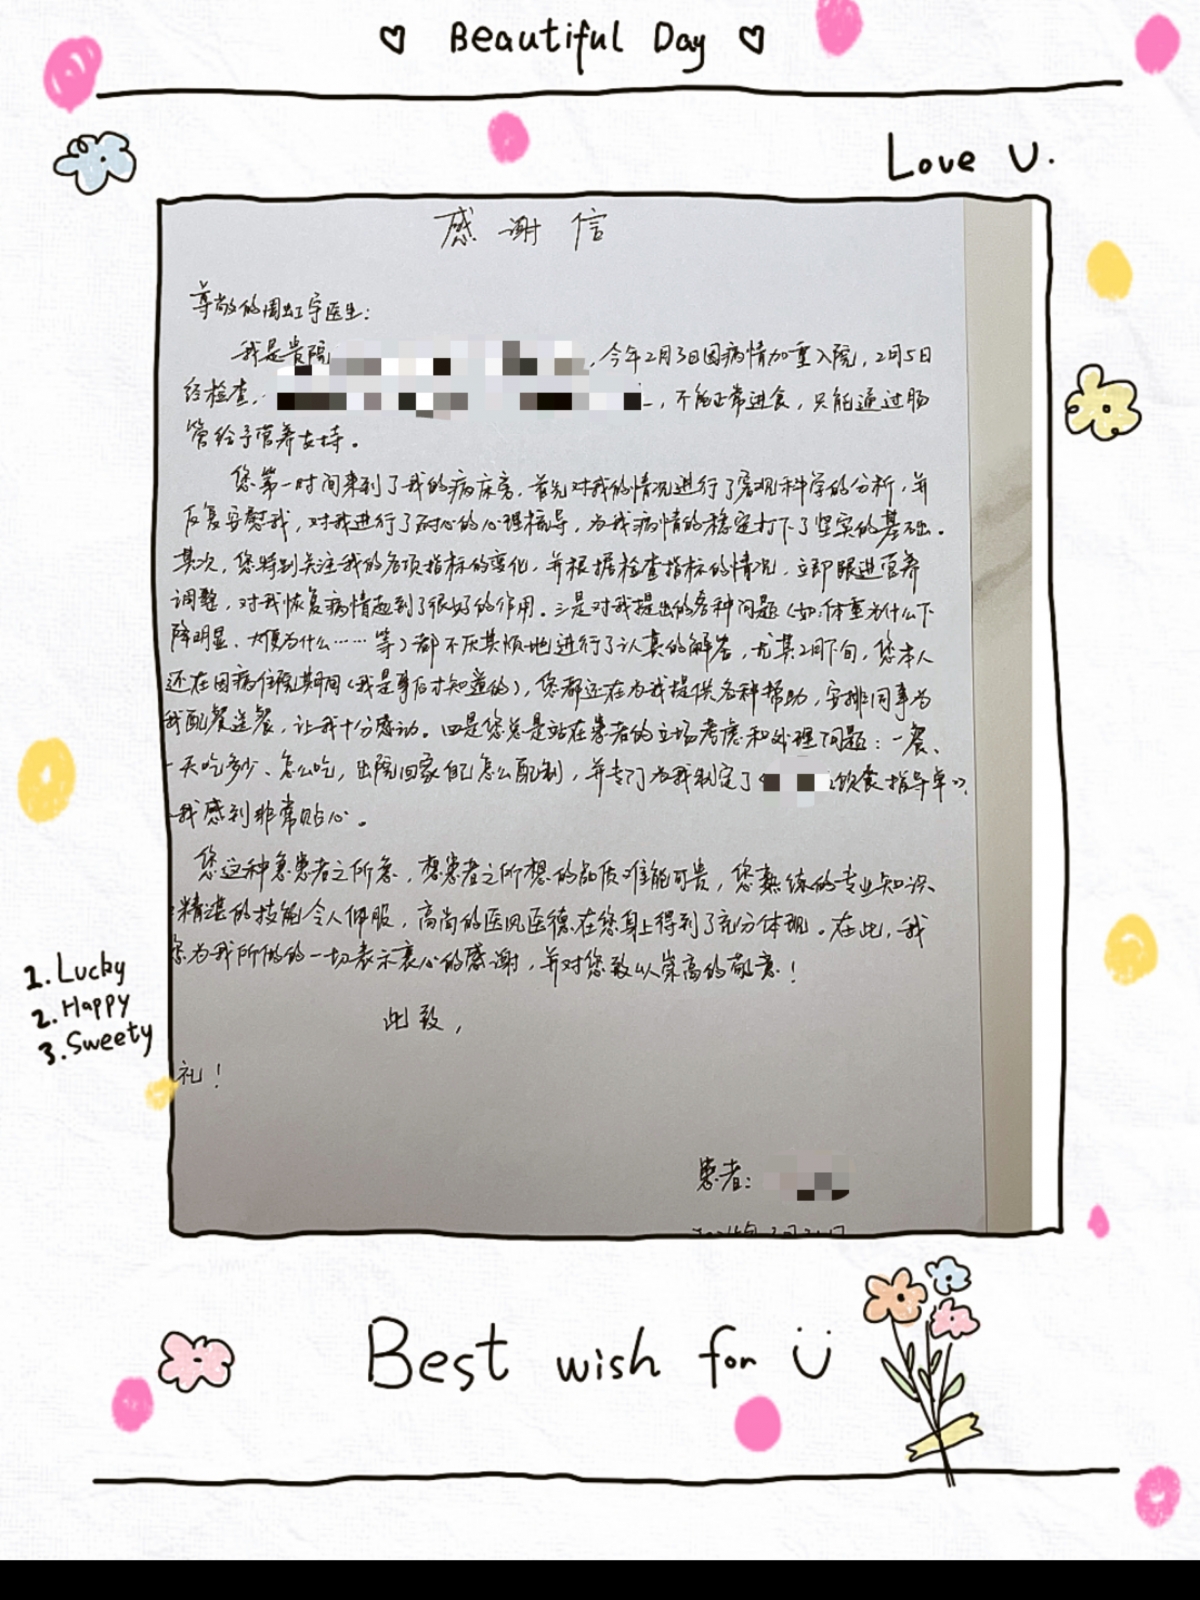 Beautiful Day
Love U.
感谢信
尊敬的周虹宇医生:
我是贵院 ,今年2月3日因病情加重入院,2月5日
经检查, ,不能正常进食,只能通过肠
管给予营养支持。
您第一时间来到了我的病床旁,首先对我的情况进行了客观科学的分析,并
反复安慰我,对我进行了耐心的心理梳导,为我病情的稳定打下了坚实的基础。
其次,您特别关注我的各项指标的变化,并根据检查指标的情况,立即跟进营养
调整,对我恢复病情起到了很好的作用。三是对我提出的各种问题(如:体重为什么下
降明显、大便为什么……等)都不厌其烦地进行了认真的解答,尤其2月下旬,您本人
还在因病住院期间(我是事后才知道的),您都还在为我提供各种帮助,安排同事为
我配餐送餐,让我十分感动。四是您总是站在患者的立场考虑和处理问题:一餐、
一天吃多少、怎么吃,出院回家自己怎么配制,并专门为我制定了《 饮食指导单》,
我感到非常贴心。
您这种急患者之所急,想患者之所想的品质难能可贵,您熟练的专业知识、
精湛的技能令人佩服,高尚的医风医德在您身上得到了充分体现。在此,我
您为我所做的一切表示衷心的感谢,并对您致以崇高的敬意!
此致,
礼!
患者:
1. Lucky
2. Happy
3. Sweety
Best wish for U